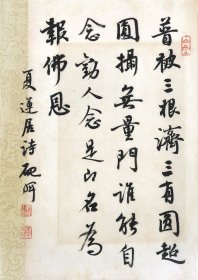 普被三根濟三有圓超
圓攝無量門誰能自
念勸人念是以名為
報佛恩
夏蓮居詩 硯坪